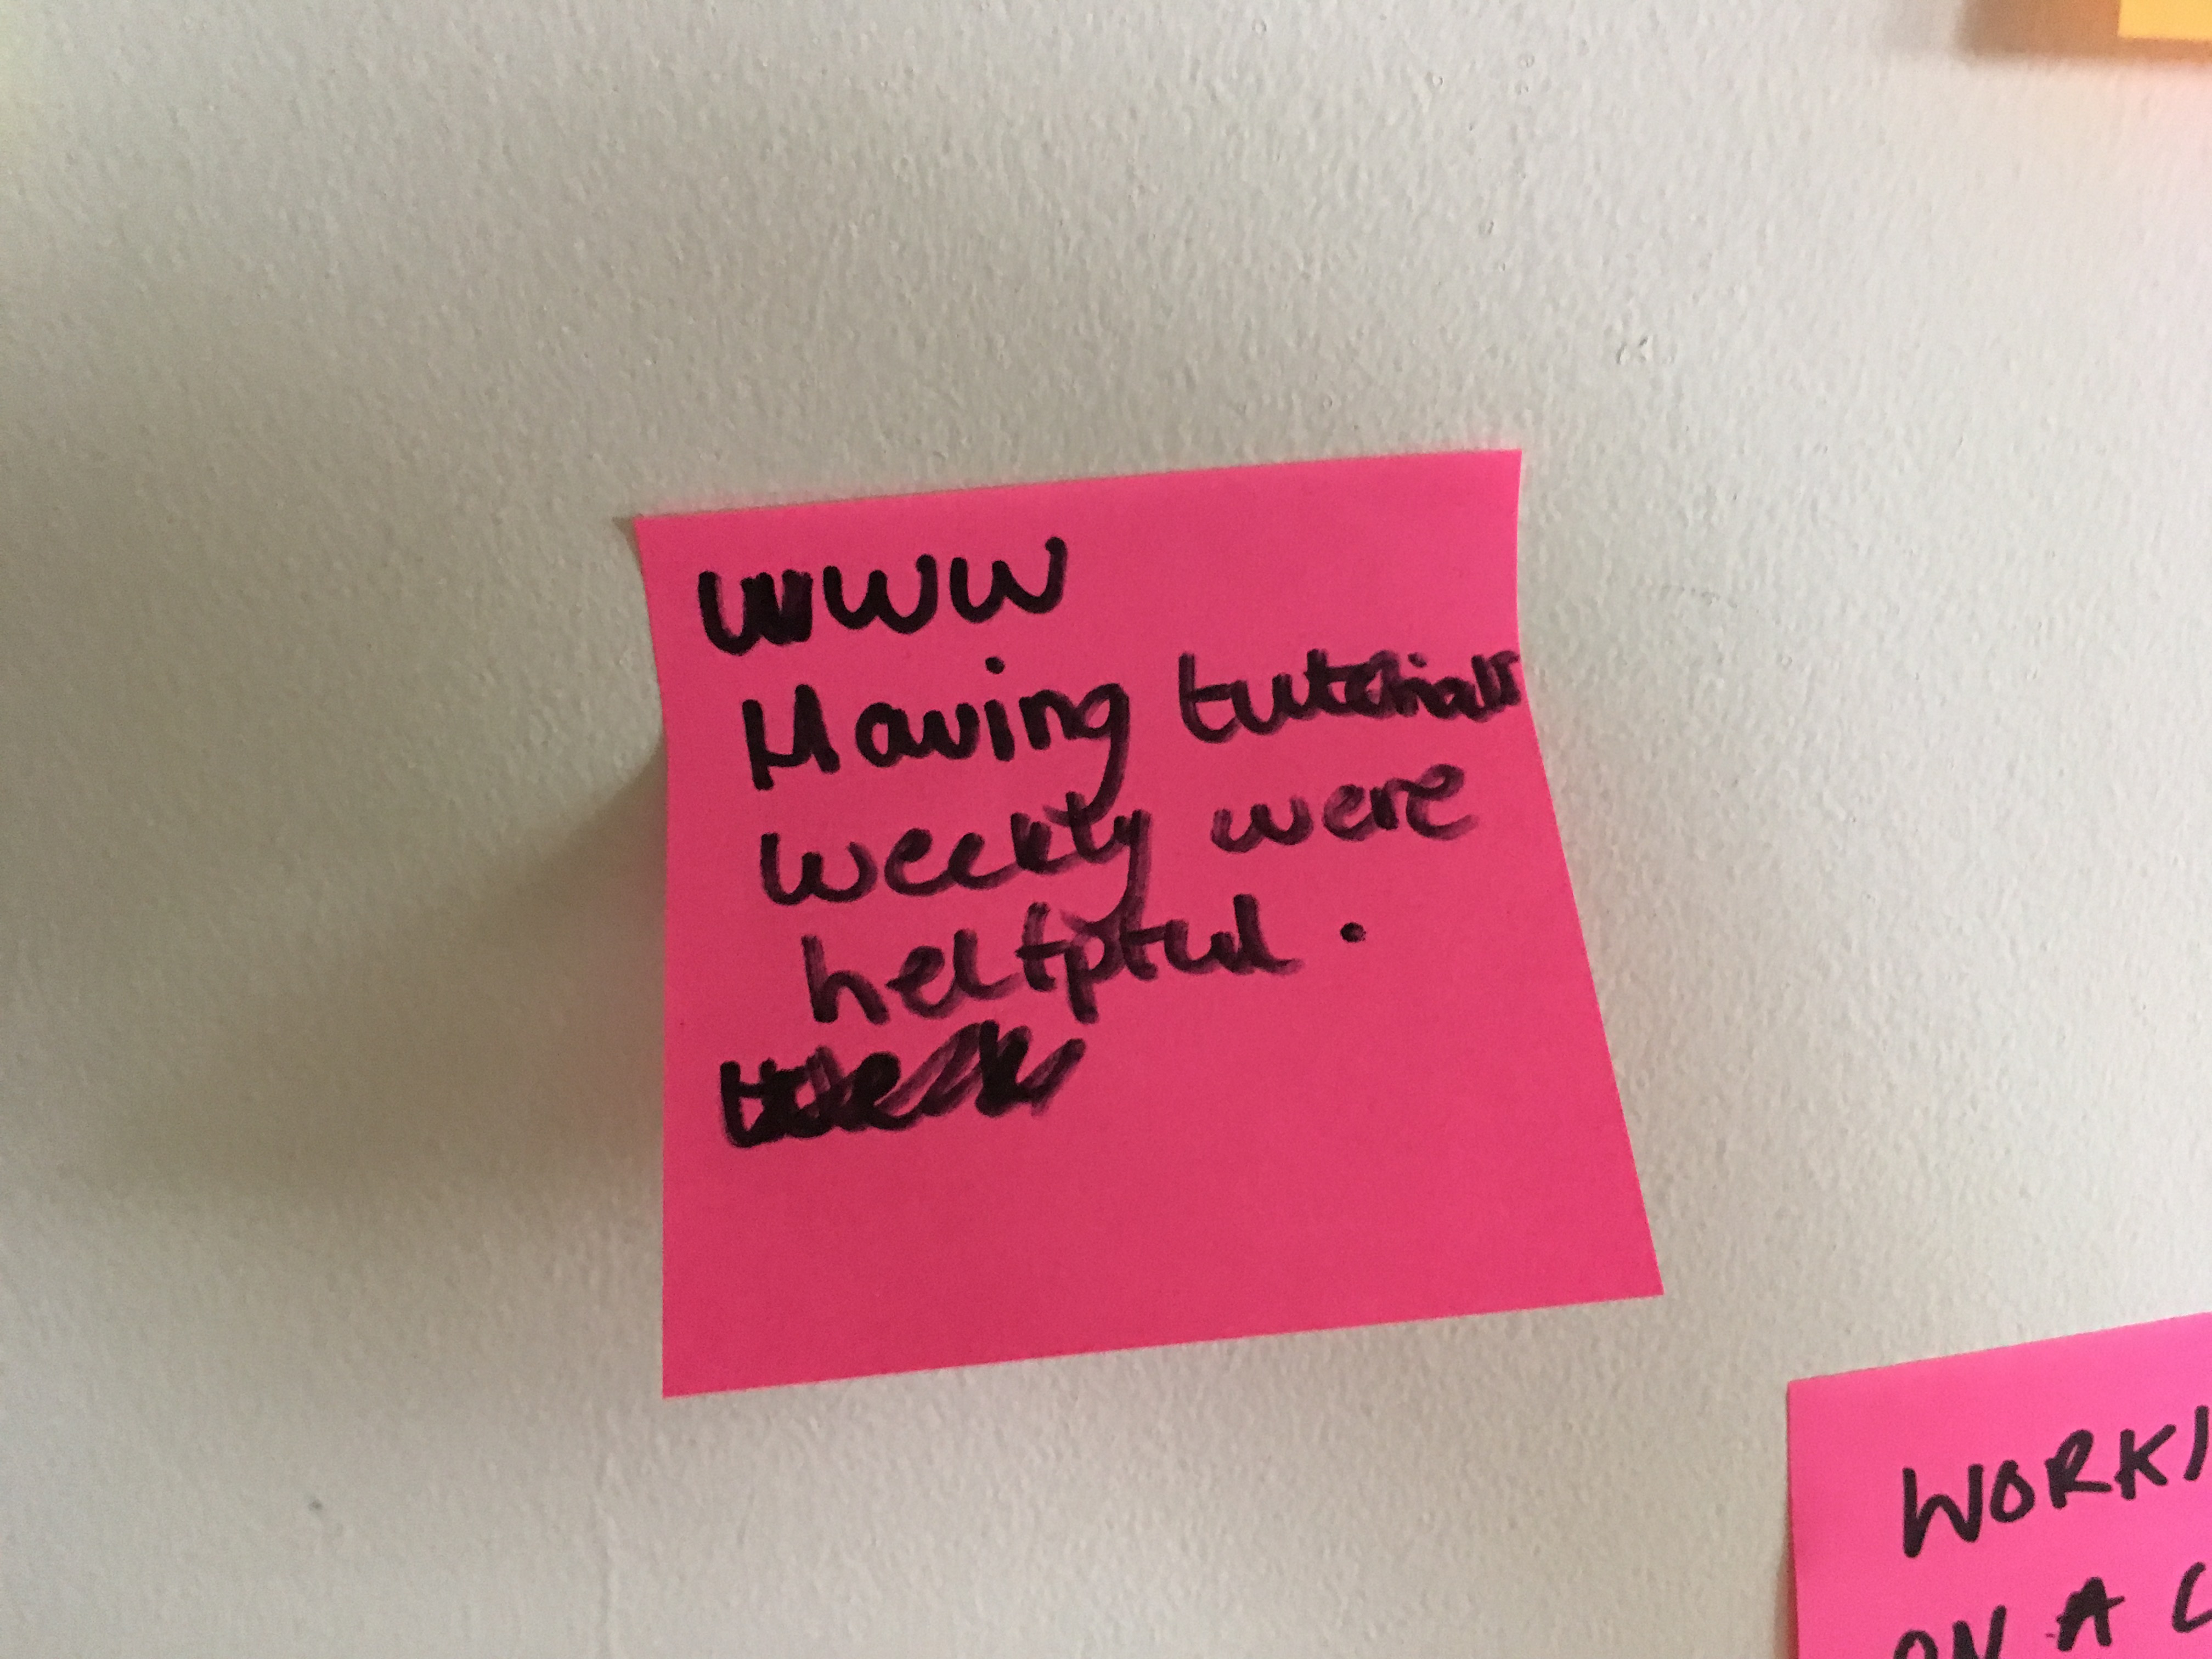 WWW
Having tutorials
weekly were
helpful.
WORKI
ON A C